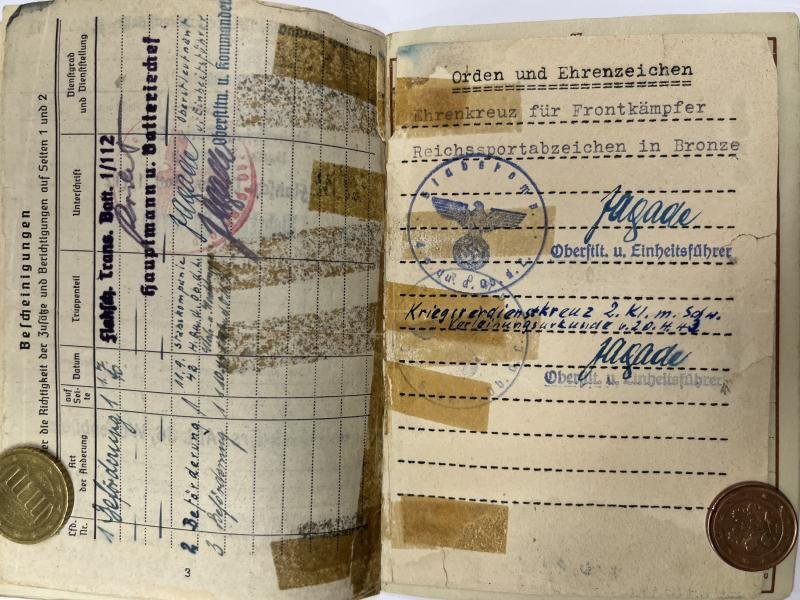 Bescheinigungen
er die Richtigkeit der Zusätze und Berichtigungen auf Seiten 1 und 2
Lfd. Nr.
Art der Änderung
auf Seite
Datum
Truppenteil
Unterschrift
Dienstgrad und Dienststellung
1 Beförderung 1
Flahsch. Trans. Batt. 1/112
Hauptmann u. Batteriechef
2. Beförderung 1 11.9. 42 Stabskompanie
Jagade Oberstleutnant u. Einheitsführer
3 Beförderung 1
Jagade Oberstltn. u. Kommandeur
3
Orden und Ehrenzeichen
Ehrenkreuz für Frontkämpfer
Reichssportabzeichen in Bronze
Jagade
Oberstlt. u. Einheitsführer
Kriegsverdienstkreuz 2. Kl. m. Schw.
Verleihungsurkunde v. 20.4.43
Jagade
Oberstlt. u. Einheitsführer